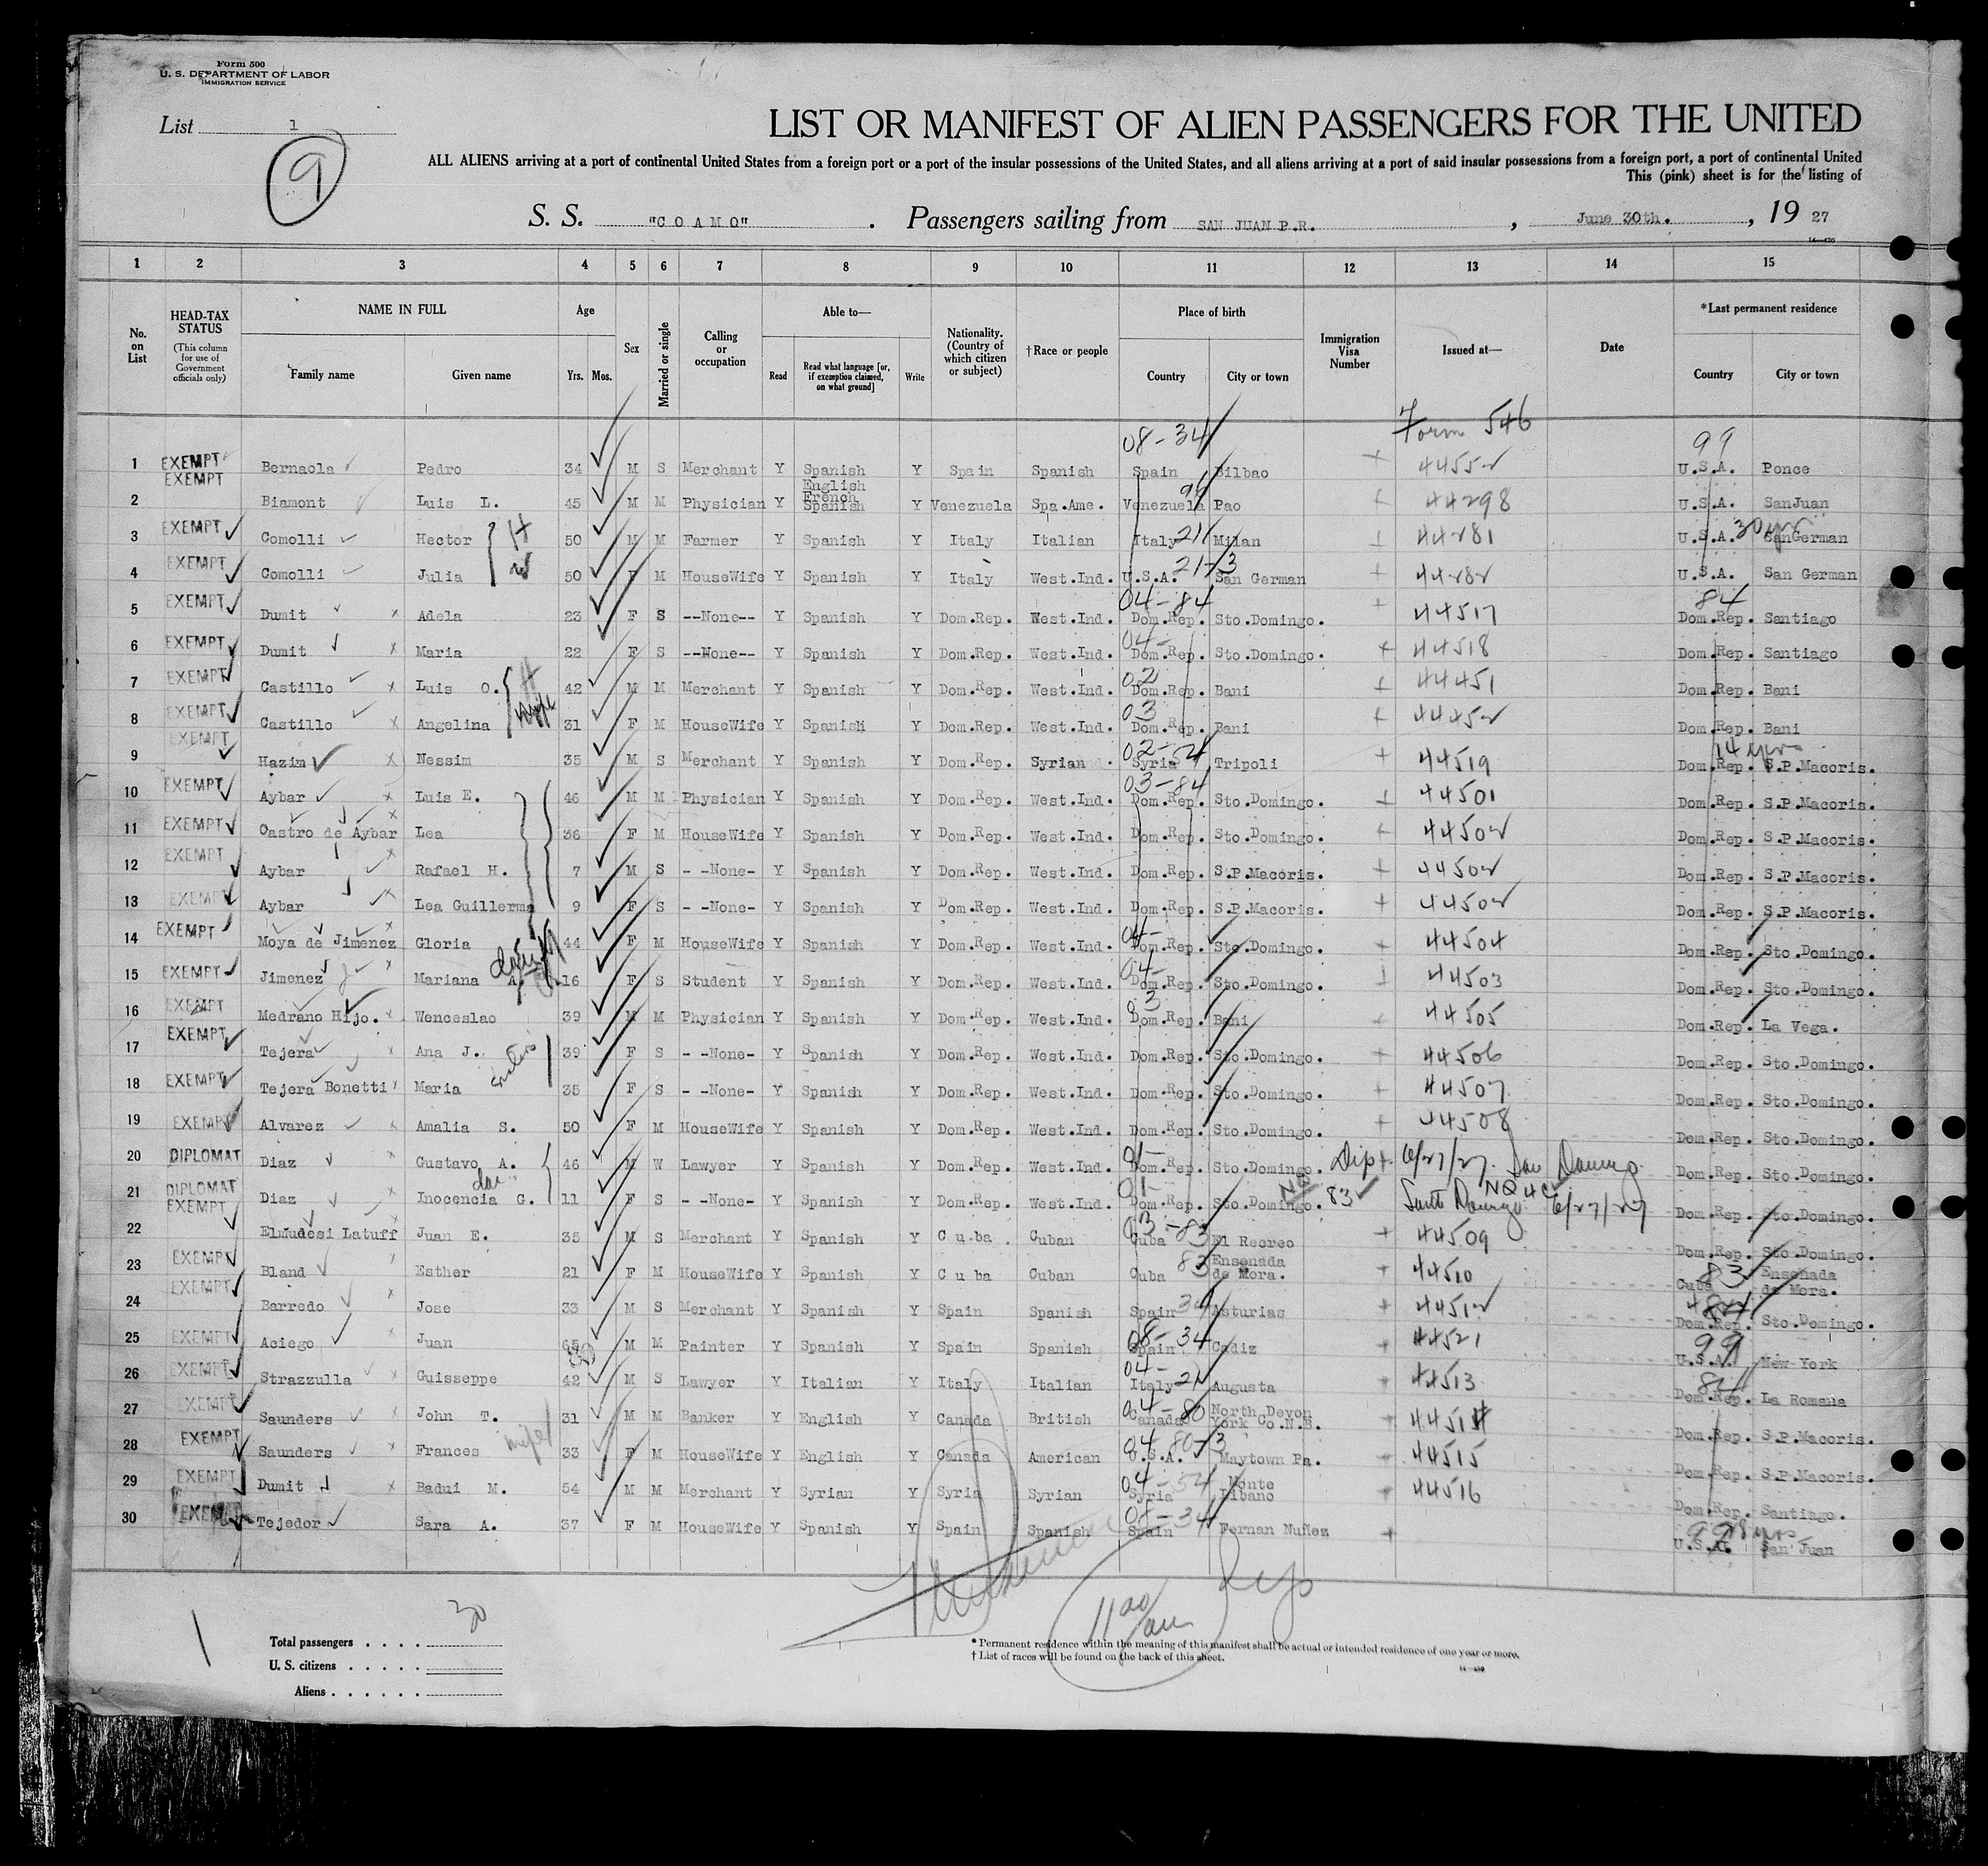 Form 500
U. S. DEPARTMENT OF LABOR
IMMIGRATION SERVICE
List 1
9
LIST OR MANIFEST OF ALIEN PASSENGERS FOR THE UNITED
ALL ALIENS arriving at a port of continental United States from a foreign port or a port of the insular possessions of the United States, and all aliens arriving at a port of said insular possessions from a foreign port, a port of continental United
This (pink) sheet is for the listing of
S. S. "COAMO". Passengers sailing from SAN JUAN P.R., June 30th., 19 27
14-430
1 2 3 4 5 6 7 8 9 10 11 12 13 14 15
No. on List
HEAD-TAX STATUS (This column for use of Government officials only)
NAME IN FULL Family name Given name
Age Yrs. Mos.
Sex
Married or single
Calling or occupation
Able to— Read Read what language [or, if exemption claimed, on what ground] Write
Nationality. (Country of which citizen or subject)
†Race or people
Place of birth Country City or town
Immigration Visa Number
Issued at—
Date
*Last permanent residence Country City or town
Form 546
1 EXEMPT Bernaola Pedro 34 M S Merchant Y Spanish Y Spain Spanish 08-34 Spain Bilbao 44552 99 U.S.A. Ponce
2 EXEMPT Biamont Luis L. 45 M M Physician Y English French Spanish Y Venezuela Spa.Ame. Venezuela Pao 44298 U.S.A. SanJuan
3 EXEMPT Comolli Hector H 50 M M Farmer Y Spanish Y Italy Italian Italy 21 Milan 44281 U.S.A. 30 yrs SanGerman
4 EXEMPT Comolli Julia W 50 F M HouseWife Y Spanish Y Italy West.Ind. U.S.A. 21-3 San German 44282 U.S.A. San German
5 EXEMPT Dumit Adela 23 F S --None-- Y Spanish Y Dom.Rep. West.Ind. 04-84 Dom.Rep. Sto.Domingo. 44517 84 Dom.Rep. Santiago
6 EXEMPT Dumit Maria 22 F S --None-- Y Spanish Y Dom.Rep. West.Ind. 04- Dom.Rep. Sto.Domingo. 44518 Dom.Rep. Santiago
7 EXEMPT Castillo Luis O. H 42 M M Merchant Y Spanish Y Dom.Rep. West.Ind. 02 Dom.Rep. Bani 44451 Dom.Rep. Bani
8 EXEMPT Castillo Angelina Wife 31 F M HouseWife Y Spanish Y Dom.Rep. West.Ind. 03 Dom.Rep. Bani 44452 Dom.Rep. Bani
9 EXEMPT Hazim Nessim 35 M S Merchant Y Spanish Y Dom.Rep. Syrian 02-54 Syria Tripoli 44519 14 yrs Dom.Rep. S.P.Macoris.
10 EXEMPT Aybar Luis E. 46 M M Physician Y Spanish Y Dom.Rep. West.Ind. 03-84 Dom.Rep. Sto.Domingo. 44501 Dom.Rep. S.P.Macoris.
11 EXEMPT Castro de Aybar Lea 36 F M HouseWife Y Spanish Y Dom.Rep. West.Ind. Dom.Rep. Sto.Domingo. 44502 Dom.Rep. S.P.Macoris.
12 EXEMPT Aybar Rafael H. 7 M S - -None- Y Spanish Y Dom.Rep. West.Ind. Dom.Rep. S.P.Macoris. 44502 Dom.Rep. S.P.Macoris.
13 EXEMPT Aybar Lea Guillerma 9 F S - -None- Y Spanish Y Dom.Rep. West.Ind. Dom.Rep. S.P.Macoris. 44502 Dom.Rep. S.P.Macoris.
14 EXEMPT Moya de Jimenez Gloria 44 F M HouseWife Y Spanish Y Dom.Rep. West.Ind. 04- Dom.Rep. Sto.Domingo. 44504 Dom.Rep. Sto.Domingo.
15 EXEMPT Jimenez Mariana A. 16 F S Student Y Spanish Y Dom.Rep. West.Ind. 04- Dom.Rep. Sto.Domingo. 44503 Dom.Rep. Sto.Domingo.
16 EXEMPT Medrano Hijo. Wenceslao 39 M M Physician Y Spanish Y Dom.Rep. West.Ind. Dom.Rep. Bani 44505 Dom.Rep. La Vega.
17 EXEMPT Tejera Ana J. 39 F S - -None- Y Spanish Y Dom.Rep. West.Ind. Dom.Rep. Sto.Domingo. 44506 Dom.Rep. Sto.Domingo.
18 EXEMPT Tejera Bonetti Maria 35 F S - -None- Y Spanish Y Dom.Rep. West.Ind. Dom.Rep. Sto.Domingo. 44507 Dom.Rep. Sto.Domingo.
19 EXEMPT Alvarez Amalia S. 50 F M HouseWife Y Spanish Y Dom.Rep. West.Ind. Dom.Rep. Sto.Domingo. 44508 Dom.Rep. Sto.Domingo.
20 DIPLOMAT Diaz Gustavo A. 46 M W Lawyer Y Spanish Y Dom.Rep. West.Ind. Dom.Rep. Sto.Domingo. Dip 6/27/27. San Domingo Dom.Rep. Sto.Domingo.
21 DIPLOMAT Diaz Inocencia G. dau 11 F S - -None- Y Spanish Y Dom.Rep. West.Ind. Dom.Rep. Sto.Domingo. NQ 83 Santo Domingo 6/27/27 Dom.Rep. Sto.Domingo.
22 EXEMPT Elmudesi Latuff Juan E. 35 M S Merchant Y Spanish Y Cuba. Cuban 03-83 Cuba El Recreo 44509 Dom.Rep. Sto.Domingo.
23 EXEMPT Bland Esther 21 F M HouseWife Y Spanish Y Cuba Cuban Cuba 83 Ensenada de Mora. 44510 83 Cuba Ensenada de Mora.
24 EXEMPT Barredo Jose 33 M S Merchant Y Spanish Y Spain Spanish Spain 34 Asturias 44512 Dom.Rep. Sto.Domingo.
25 EXEMPT Aciego Juan 65 M M Painter Y Spanish Y Spain Spanish 08-34 Spain Cadiz 44521 99 U.S.A. New York
26 EXEMPT Strazzulla Guisseppe 42 M S Lawyer Y Italian Y Italy Italian 04- Italy 21 Augusta 44513 84 Dom.Rep. La Romana
27 EXEMPT Saunders John T. 31 M M Banker Y English Y Canada British 04-80 Canada North Devon York Co.N.B. 44514 Dom.Rep. S.P.Macoris.
28 EXEMPT Saunders Frances wife 33 F M HouseWife Y English Y Canada American 04 80-3 U.S.A. Maytown Pa. 44515 Dom.Rep. S.P.Macoris.
29 EXEMPT Dumit Badui M. 54 M M Merchant Y Syrian Y Syria Syrian 04-54 Syria Monte Libano 44516 Dom.Rep. Santiago.
30 EXEMPT Tejedor Sara A. 37 F M HouseWife Y Spanish Y Spain Spanish 08-34 Spain Fernan Nuñez 99 U.S.A. San Juan
Total passengers 30
U. S. citizens
Aliens
* Permanent residence within the meaning of this manifest shall be actual or intended residence of one year or more.
† List of races will be found on the back of this sheet.
14-430